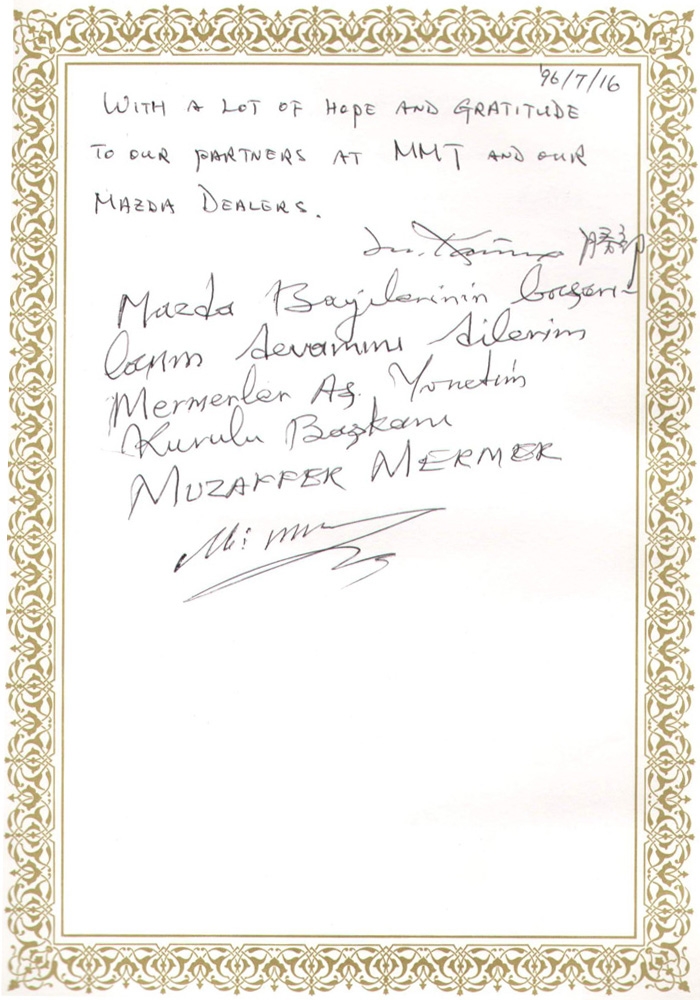 '96/7/16
WITH A LOT OF HOPE AND GRATITUDE
TO OUR PARTNERS AT MMT AND OUR
MAZDA DEALERS.
Mazda Bayilerinin başarı-
larının devamını dilerim
Mermerler Aş. Yönetim
Kurulu Başkanı
MUZAFFER MERMER